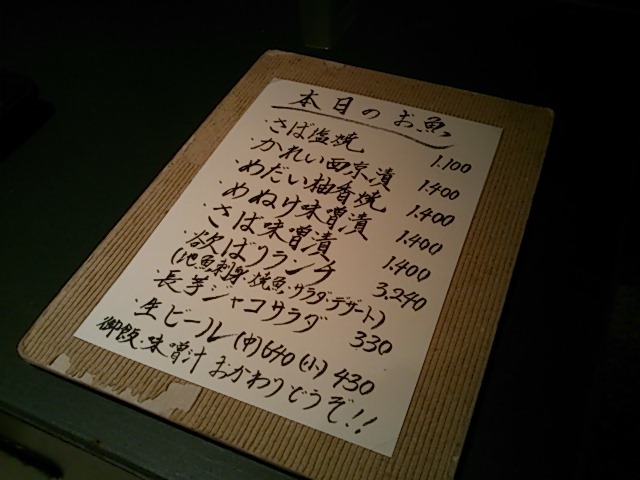 本日のお魚
・さば塩焼 1.100
・かれい西京漬 1.400
・めだい柚香焼 1.400
・めぬけ味噌漬 1.400
・さば味噌漬 1.400
・欲ばりランチ 3.240
(地魚刺身・焼魚・サラダ・デザート)
・長芋ジャコサラダ 330
・生ビール(中)640(小)430
御飯・味噌汁おかわりどうぞ!!